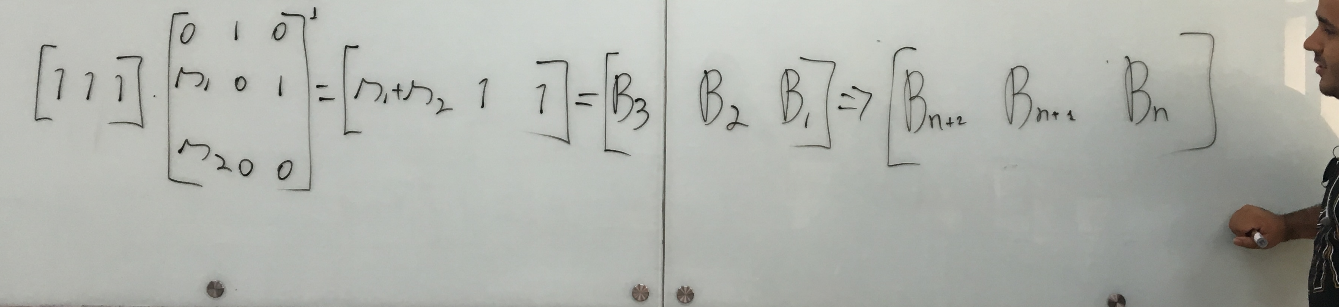 [1 1 1] · [0 1 0; r₁ 0 1; r₂ 0 0]¹ = [r₁+r₂ 1 1] = [B₃ B₂ B₁] => [Bₙ₊₂ Bₙ₊₁ Bₙ]